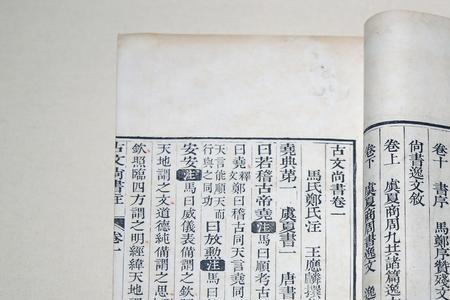 卷十 書序 馬鄭序贊殘文
尙書逸文敘
卷上 虞夏商周九共諸篇逸
卷下 虞夏商周書逸文 逸
古文尙書卷一
馬氏鄭氏注 王應麟撰
堯典第一 虞夏書一 唐書
曰若稽古帝堯 注 馬曰順考古
曰堯釋文鄭曰稽古同天言堯同
天言能順天而
行與之同功
曰放勳 注 馬曰
安安 注 馬曰威儀表備謂之欽
天地謂之文道德純備謂之思
欽照臨四方謂之明經緯天地
古文尙書注 卷一